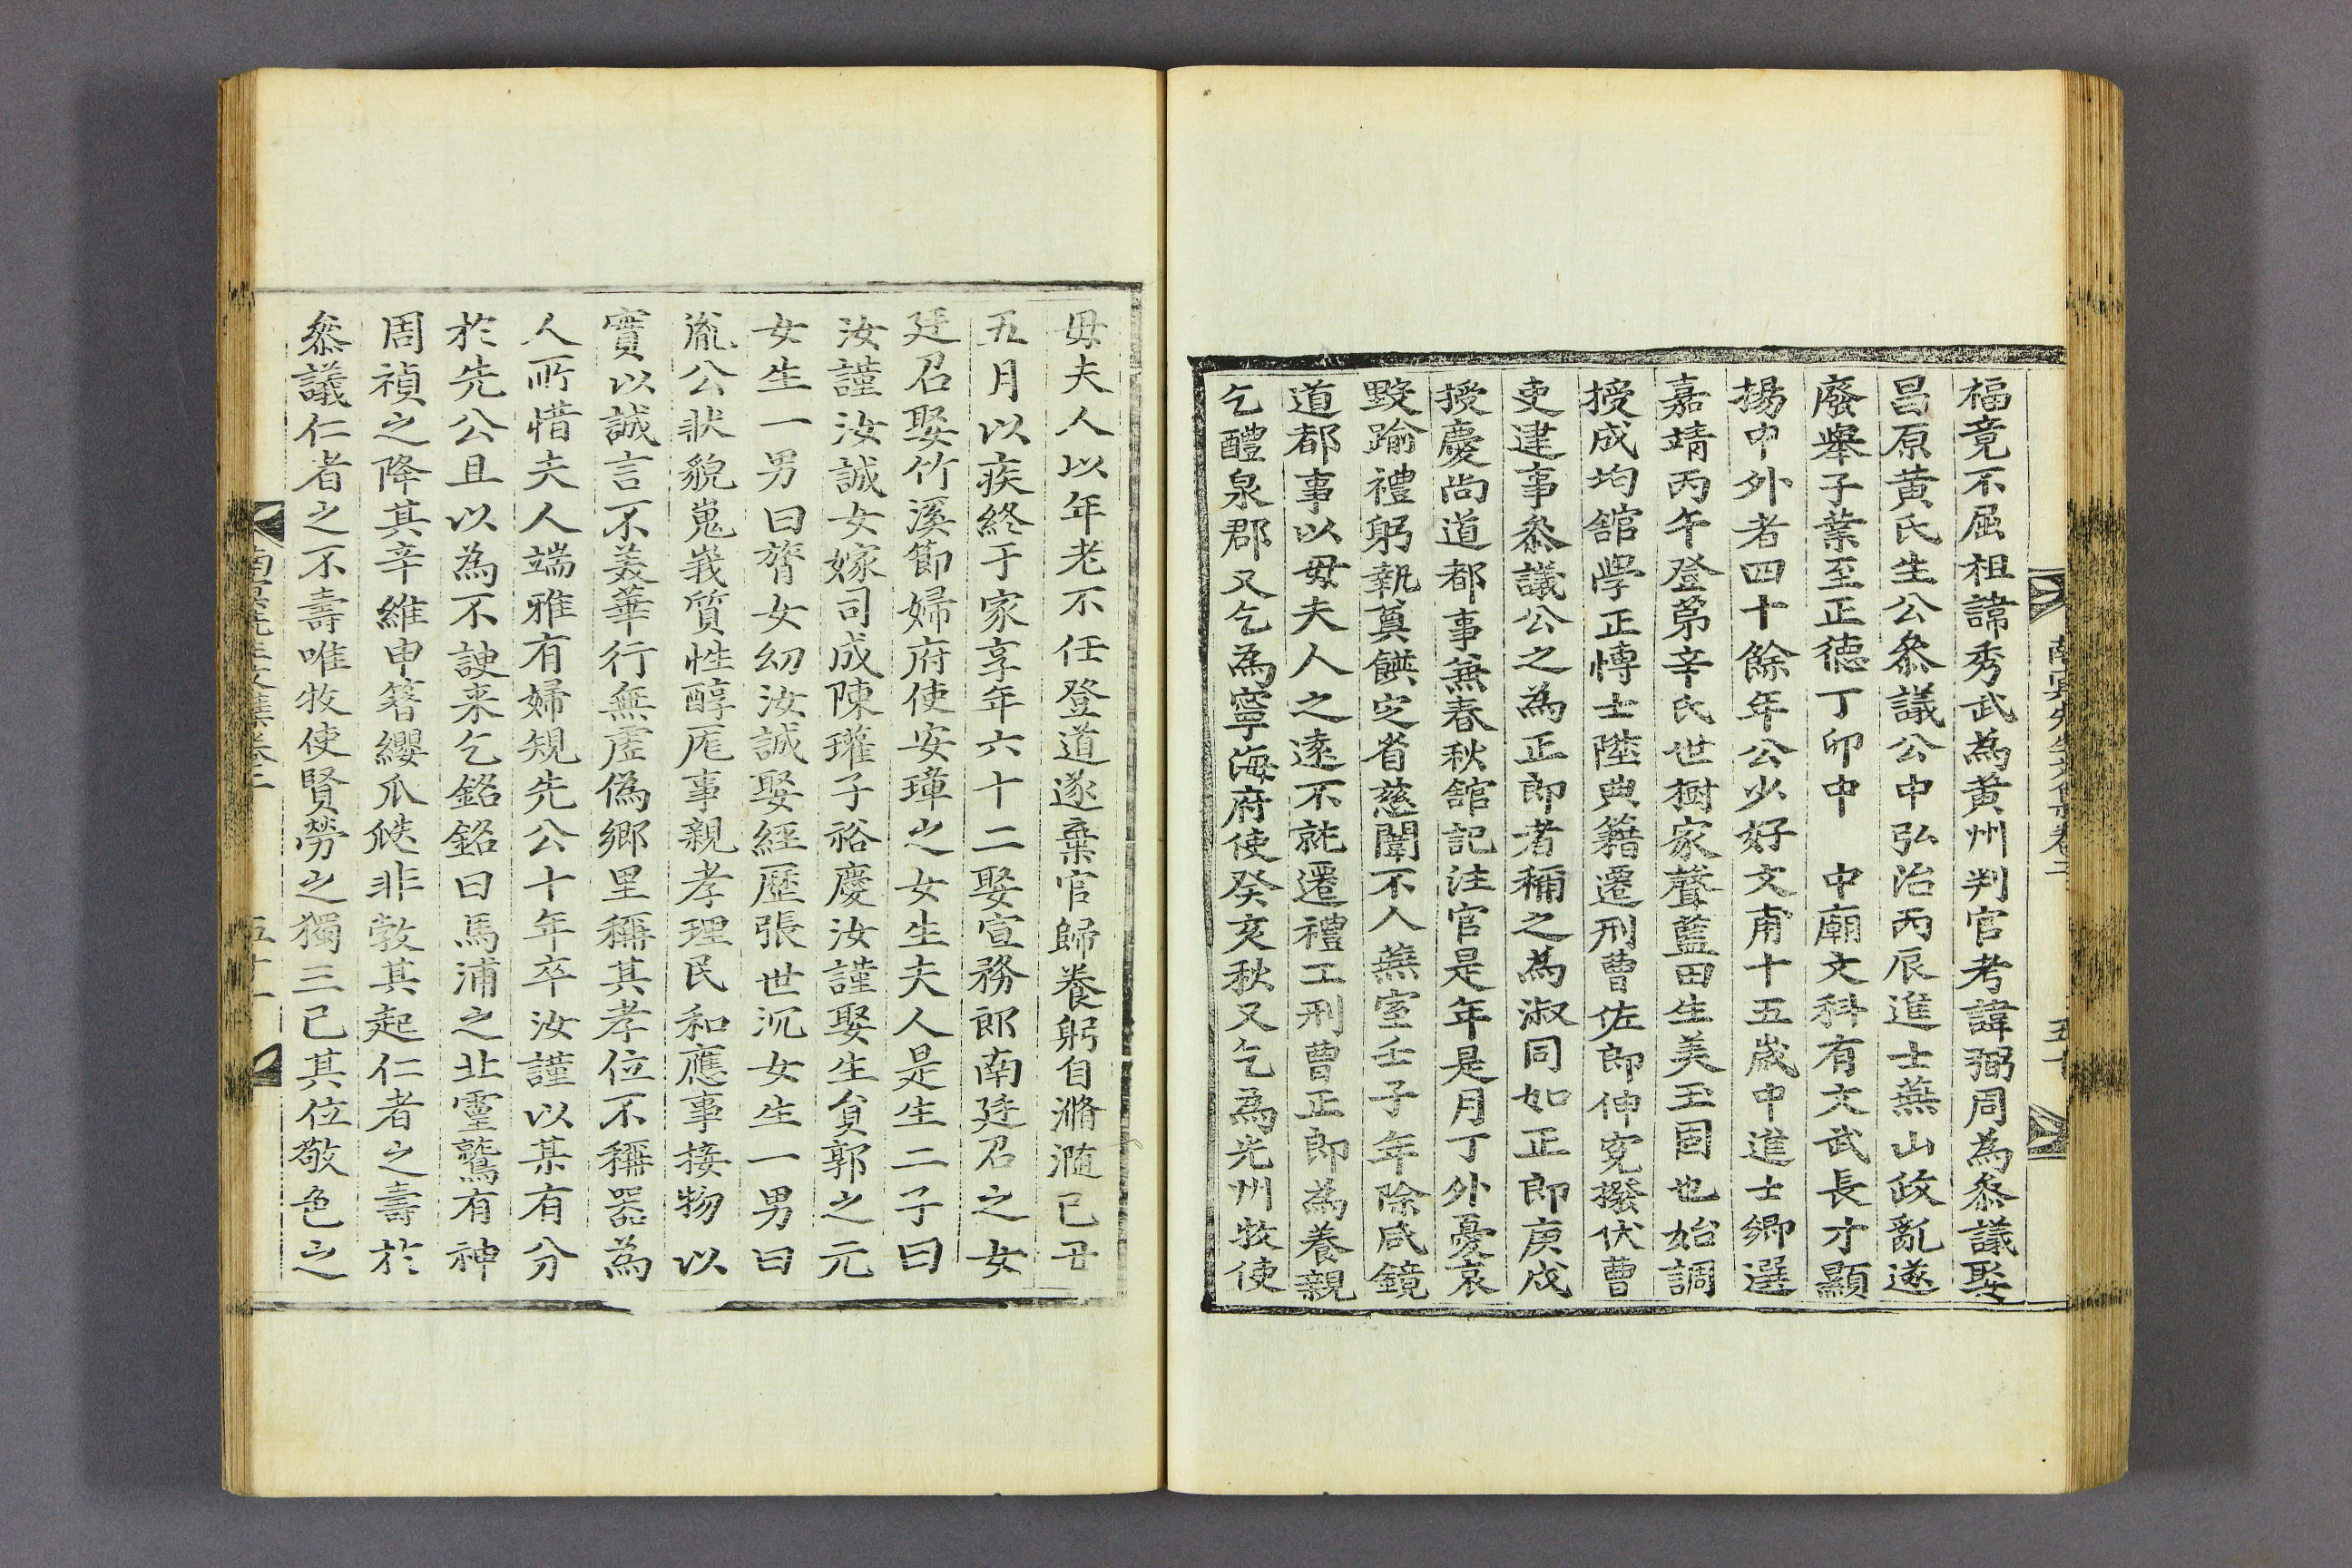 福竟不屈祖諱秀武爲黃州判官考諱弼周爲叅議娶
昌原黃氏生公叅議公中弘治丙辰進士燕山政亂遂
廢擧子業至正德丁卯中　中廟文科有文武長才顯
揚中外者四十餘年公少好文甫十五歲中進士鄕選
嘉靖丙午登第辛氏世樹家聲藍田生美玉固也始調
授成均舘學正博士陞典籍遷刑曹佐郞伸寃撥伏曹
吏建事叅議公之爲正郞者稱之爲淑同如正郞庚戌
授慶尚道都事兼春秋舘記注官是年是月丁外憂哀
毁踰禮躬執奠饌定省慈闈不入燕室壬子年除咸鏡
道都事以毋夫人之遠不就遷禮工刑曹正郞爲養親
乞醴泉郡又乞爲寧海府使癸亥秋又乞爲光州牧使
南冥先生文集卷二　五十
毋夫人以年老不任登道遂棄官歸養躬自滫瀡已丑
五月以疾終于家享年六十二娶宣務郞南廷召之女
廷召娶竹溪節婦府使安璋之女生夫人是生二子曰
汝謹汝誠女嫁司成陳瓘子裕慶汝謹娶生貟郭之元
女生一男曰膂女幼汝誠娶經歷張世沉女生一男曰
胤公狀貌嵬峩質性醇厖事親孝理民和應事接物以
實以誠言不美華行無虛僞鄕里稱其孝位不稱器爲
人所惜夫人端雅有婦規先公十年卒汝謹以某有分
於先公且以爲不諛来乞銘銘曰馬浦之北靈鷲有神
周禎之降其辛維申簪纓瓜瓞非敦其起仁者之壽於
叅議仁者之不壽唯牧使賢勞之獨三已其位敬色之
南冥先生文集卷二　五十一